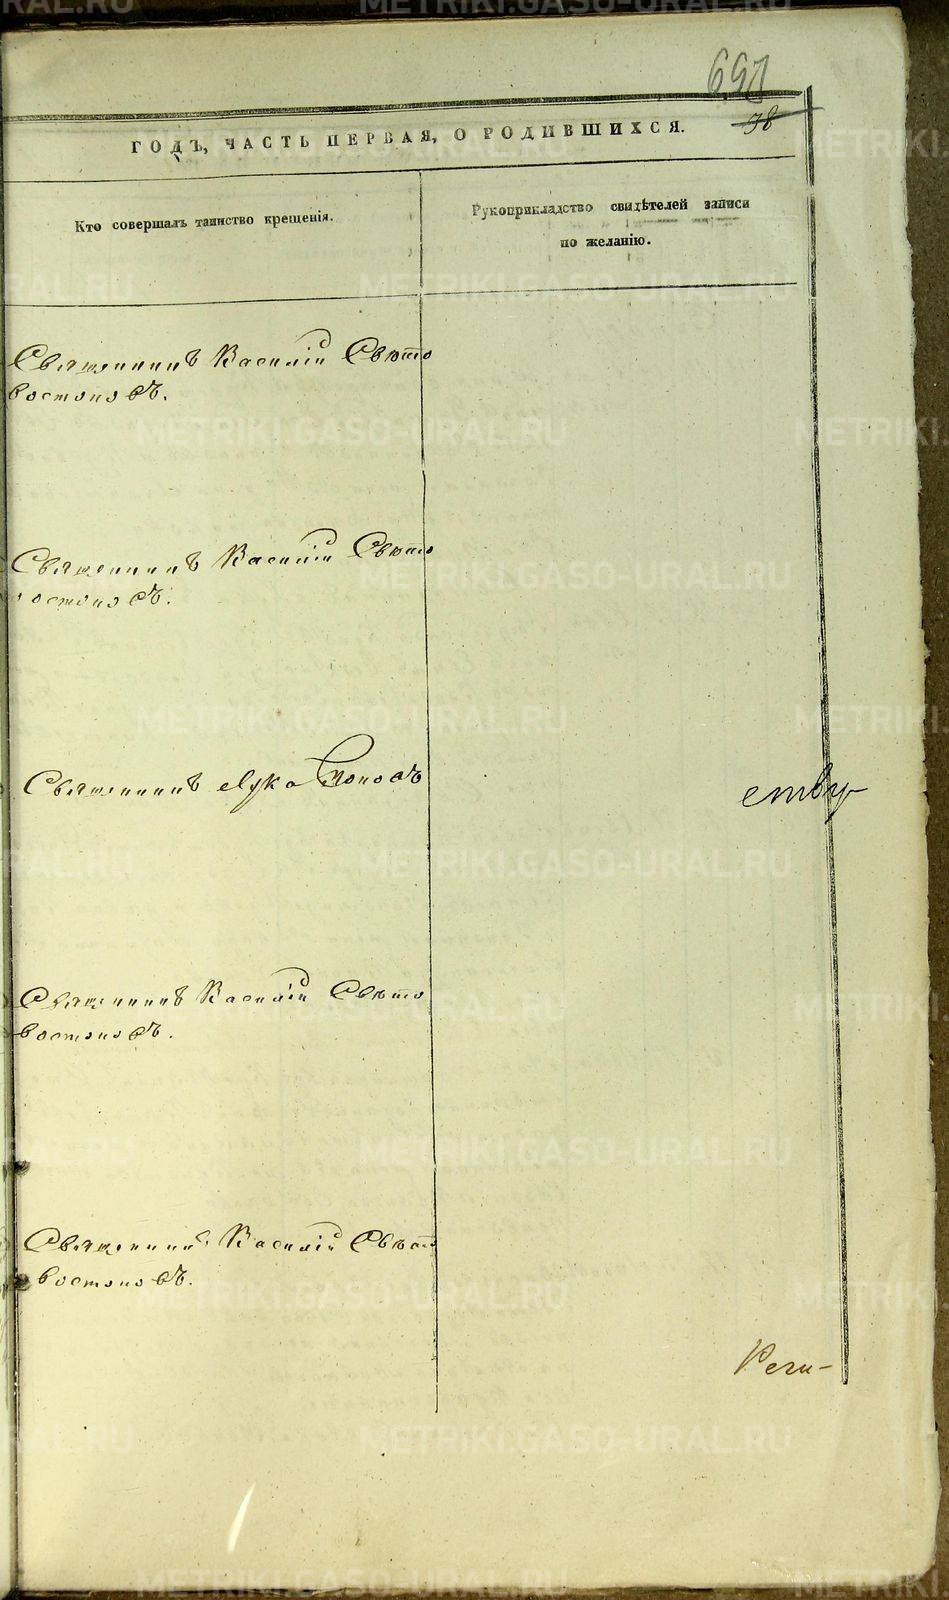 697
38
ГОДЪ, ЧАСТЬ ПЕРВАЯ, О РОДИВШИХСЯ.
Кто совершалъ таинство крещенія.
Рукоприкладство свидѣтелей записи
по желанію.
Священникъ Василій Свѣто
востоковъ.
Священникъ Василій Свѣто
востоковъ.
Священникъ Лука Поповъ
ству
Священникъ Василій Свѣто
востоковъ.
Священникъ Василій Свѣто
востоковъ.
METRIKI.GASO-URAL.RU